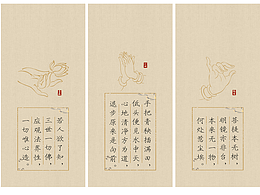 若人欲了知，
三世一切佛，
应观法界性，
一切唯心造。
手把青秧插满田，
低头便见水中天，
心地清净方为道，
退步原来是向前。
菩提本无树，
明镜亦非台，
本来无一物，
何处惹尘埃。